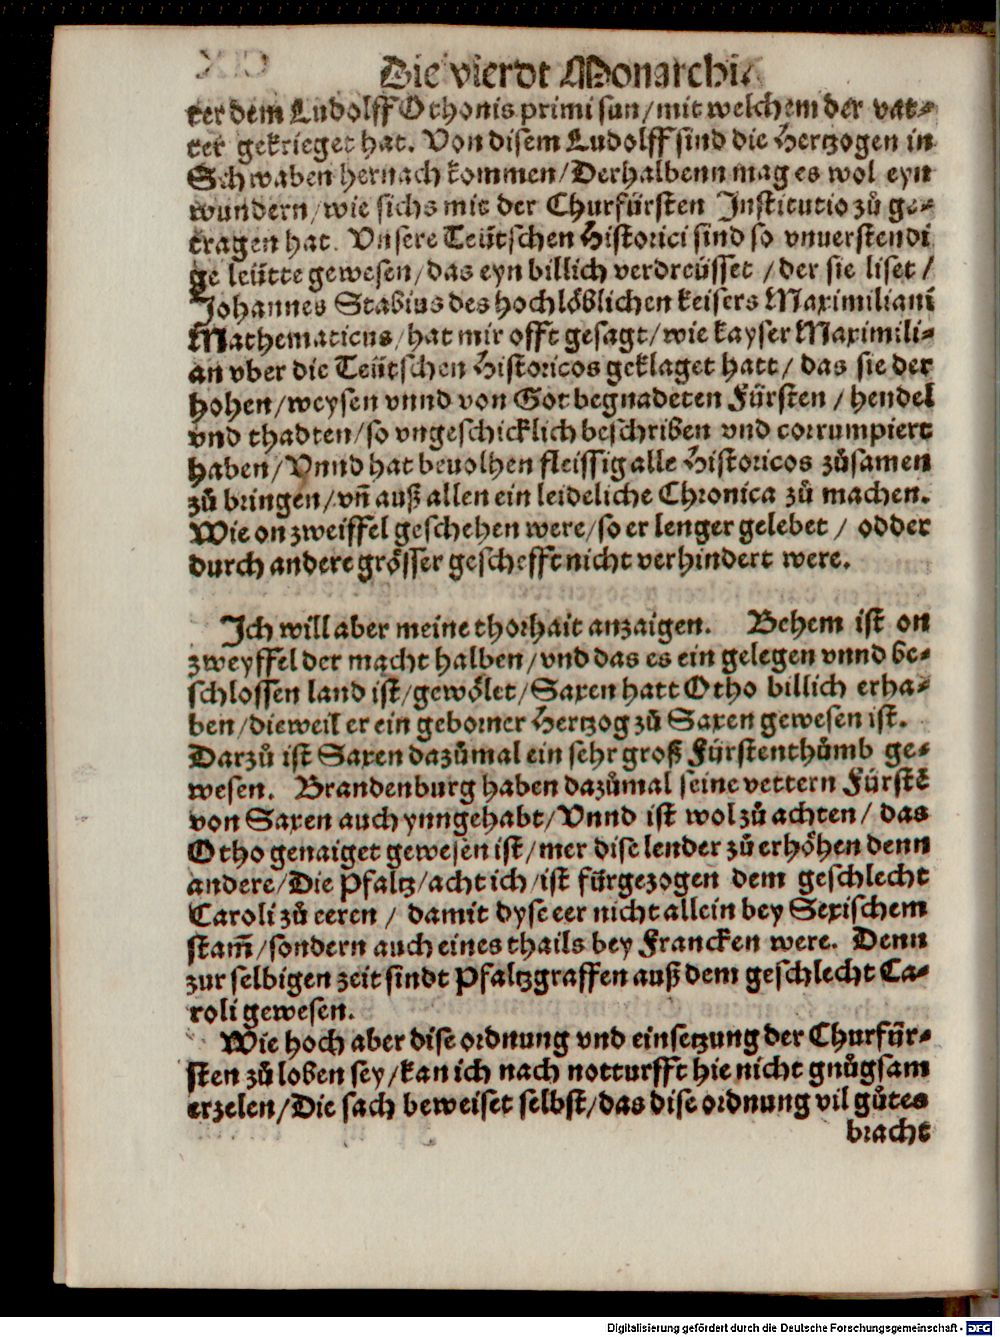 Die vierdt Monarchi
ter dem Ludolff Othonis primi sun/mit welchem der vat⸗
ter gekrieget hat. Von disem Ludolff sind die Hertzogen in
Schwaben hernach kommen/Derhalbenn mag es wol eyn
wundern/wie sichs mit der Churfürsten Institutio zů ge⸗
tragen hat. Vnsere Teütschen Historici sind so vnuerstendi
ge leütte gewesen/das eyn billich verdreüsset /der sie liset/
Johannes Stabius des hochlöblichen keisers Maximiliani
Mathematicus/hat mir offt gesagt/wie kayser Maximili⸗
an vber die Teütschen Historicos geklaget hatt/ das sie der
hohen/weysen vnnd von Got begnadeten Fürsten /hendel
vnd thadten/so vngeschicklich beschriben vnd corrumpiert
haben/Vnnd hat beuolhen fleissig alle Historicos zůsamen
zů bringen/vn̄ auß allen ein leideliche Chronica zů machen.
Wie on zweiffel geschehen were/so er lenger gelebet/ odder
durch andere grösser geschefft nicht verhindert were.
Ich will aber meine thorhait anzaigen. Behem ist on
zweyffel der macht halben/vnd das es ein gelegen vnnd be⸗
schlossen land ist/gewölet/Saxen hatt Otho billich erha⸗
ben/dieweil er ein geborner Hertzog zů Saxen gewesen ist.
Darzů ist Saxen dazůmal ein sehr groß Fürstenthůmb ge⸗
wesen. Brandenburg haben dazůmal seine vettern Fürstē
von Saxen auch ynngehabt/Vnnd ist wol zů achten/ das
Otho genaiget gewesen ist/mer dise lender zů erhöhen denn
andere/Die Pfaltz/acht ich/ist fürgezogen dem geschlecht
Caroli zů eeren/ damit dyse eer nicht allein bey Sexischem
stam̄/sondern auch eines thails bey Francken were. Denn
zur selbigen zeit sindt Pfaltzgraffen auß dem geschlecht Ca⸗
roli gewesen.
Wie hoch aber dise ordnung vnd einsetzung der Churfür⸗
sten zů loben sey/kan ich nach notturfft hie nicht gnůgsam
erzelen/Die sach beweiset selbst/das dise ordnung vil gůtes
bracht
Digitalisierung gefördert durch die Deutsche Forschungsgemeinschaft - DFG